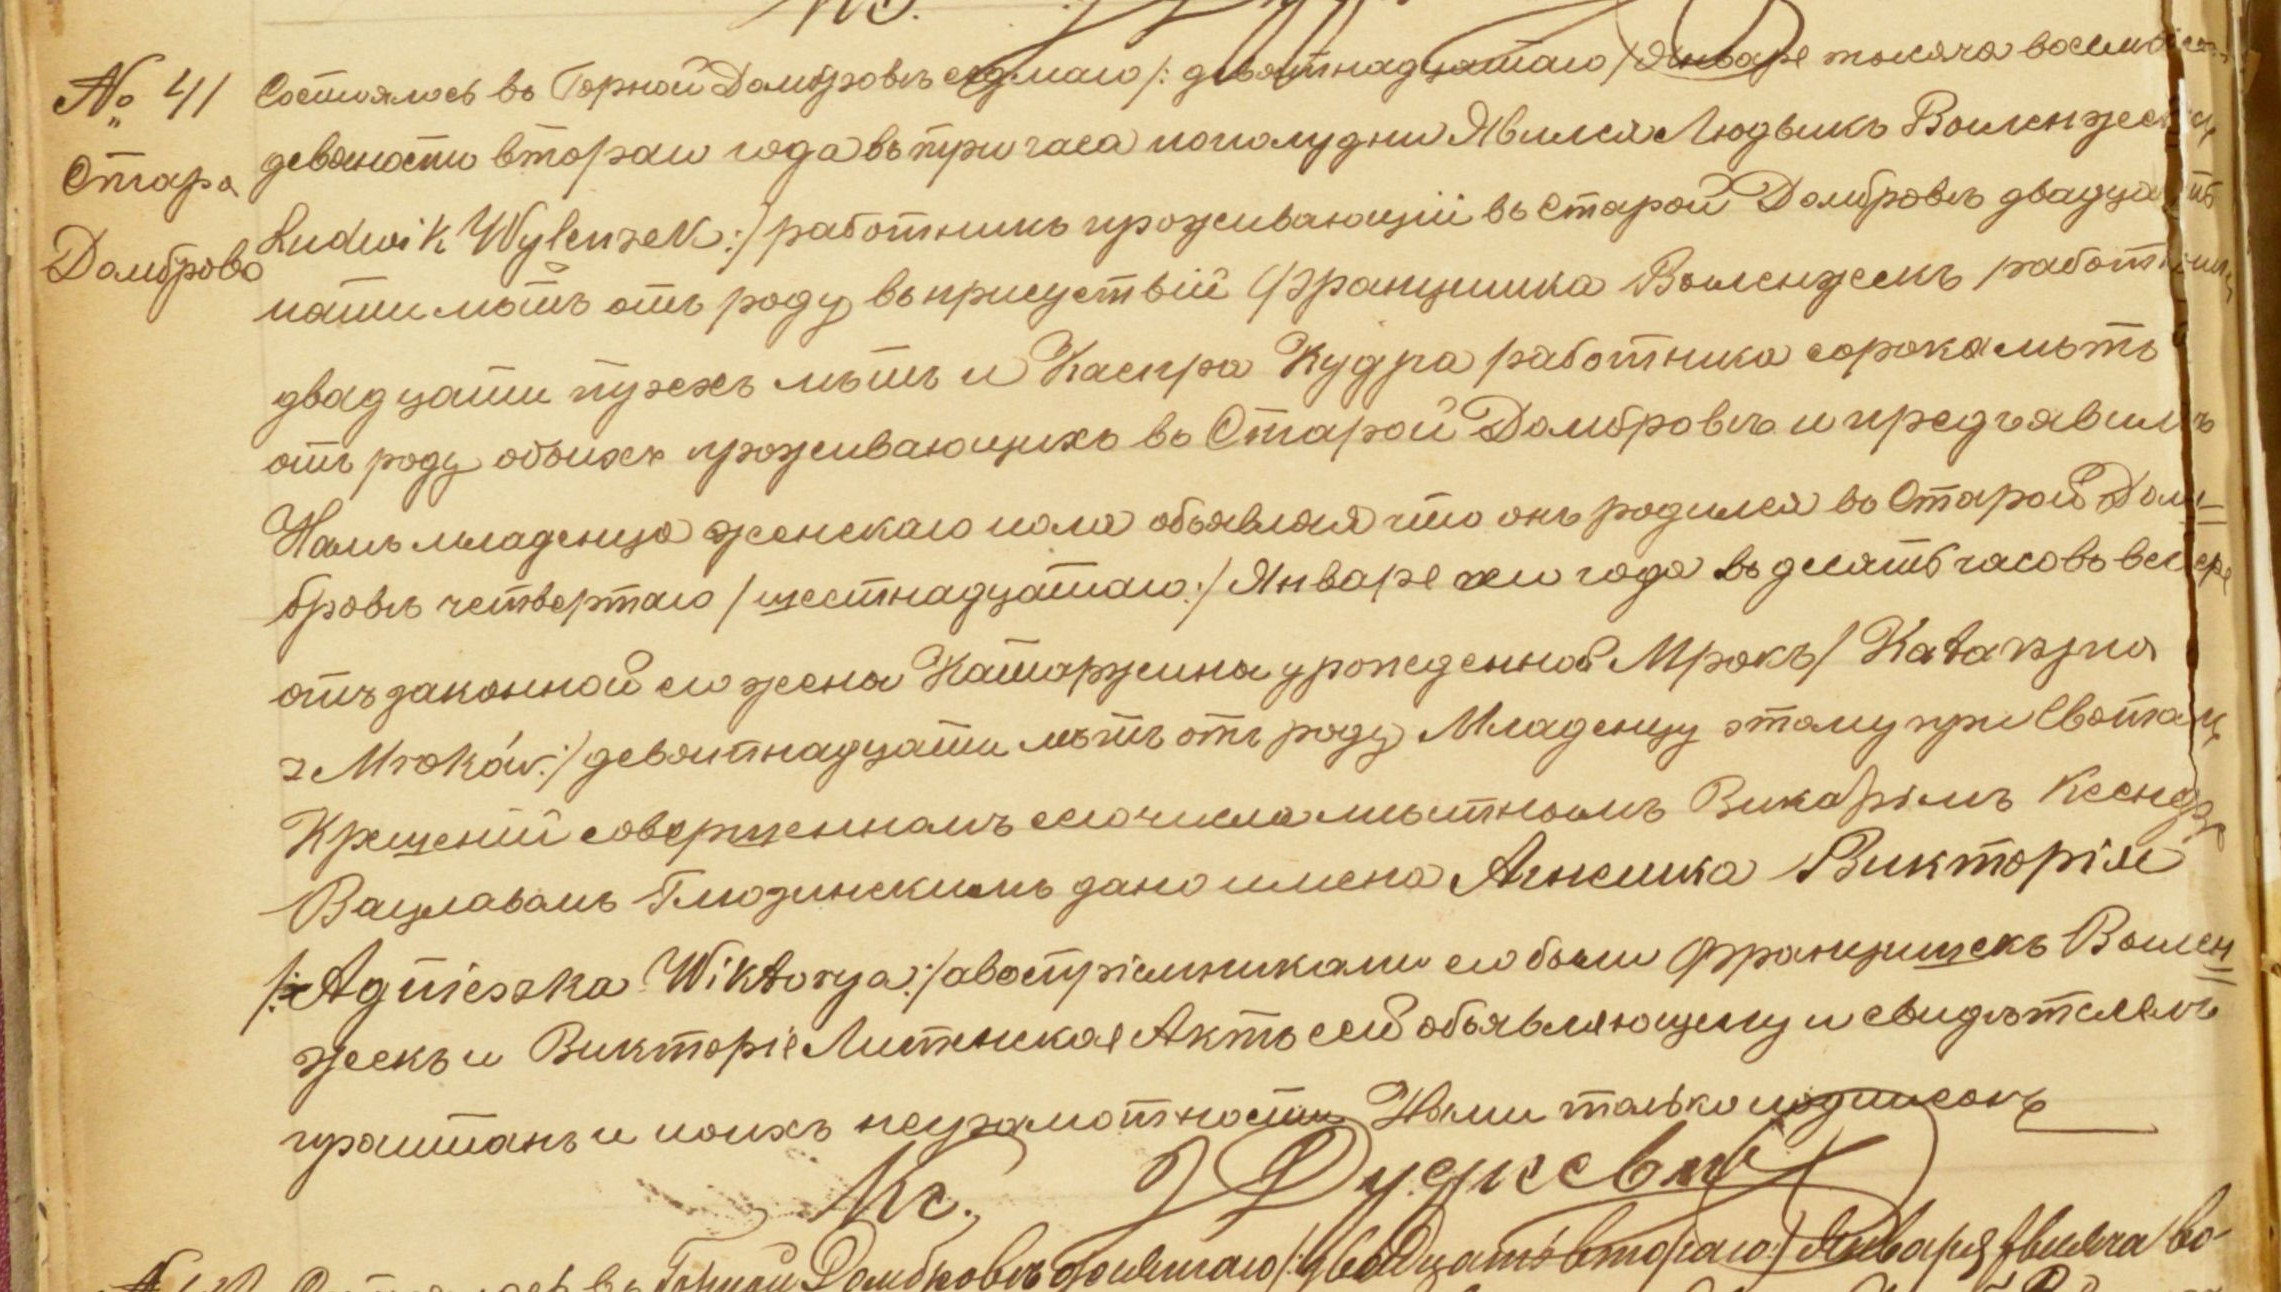 № 41
Стара
Домброва
Состоялось въ Горной Домбровѣ седмаго /: девятнадцатаго / Января тысяча восемьсотъ
девяносто втораго года въ три часа пополудни Явился Людвикъ Выленжекъ
Ludwik Wylenżek :/ работникъ проживающій въ Старой Домбровѣ двадцать
пяти лѣтъ отъ роду въ присутствіи Францишка Выленжекъ работника
двадцати трехъ лѣтъ и Каспра Кудла работника сорока лѣтъ
отъ роду обоихъ проживающихъ въ Старой Домбровѣ и предъявилъ
Намъ младенца женскаго пола объявляя что онъ родился въ Старой Дом=
бровѣ четвертаго / шестнадцатаго :/ Января сего года въ десять часовъ вечера
отъ законной его жены Катаржины урожденной Мрокъ / Katarzyna
z Mroków :/ девятнадцати лѣтъ отъ роду Младенцу этому при Святомъ
Крещеніи совершенномъ сего числа мѣстнымъ Викаріемъ Ксендзомъ
Вацлавомъ дано имена Агнешка Викторія
/: Agnieszka Wiktorya :/ а воспріемниками его были Францишекъ Вылен=
жекъ и Викторія Литинская Актъ сей объявляющему и свидѣтелямъ
прочитанъ и по ихъ неграмотности Нами только подписанъ
Кс.